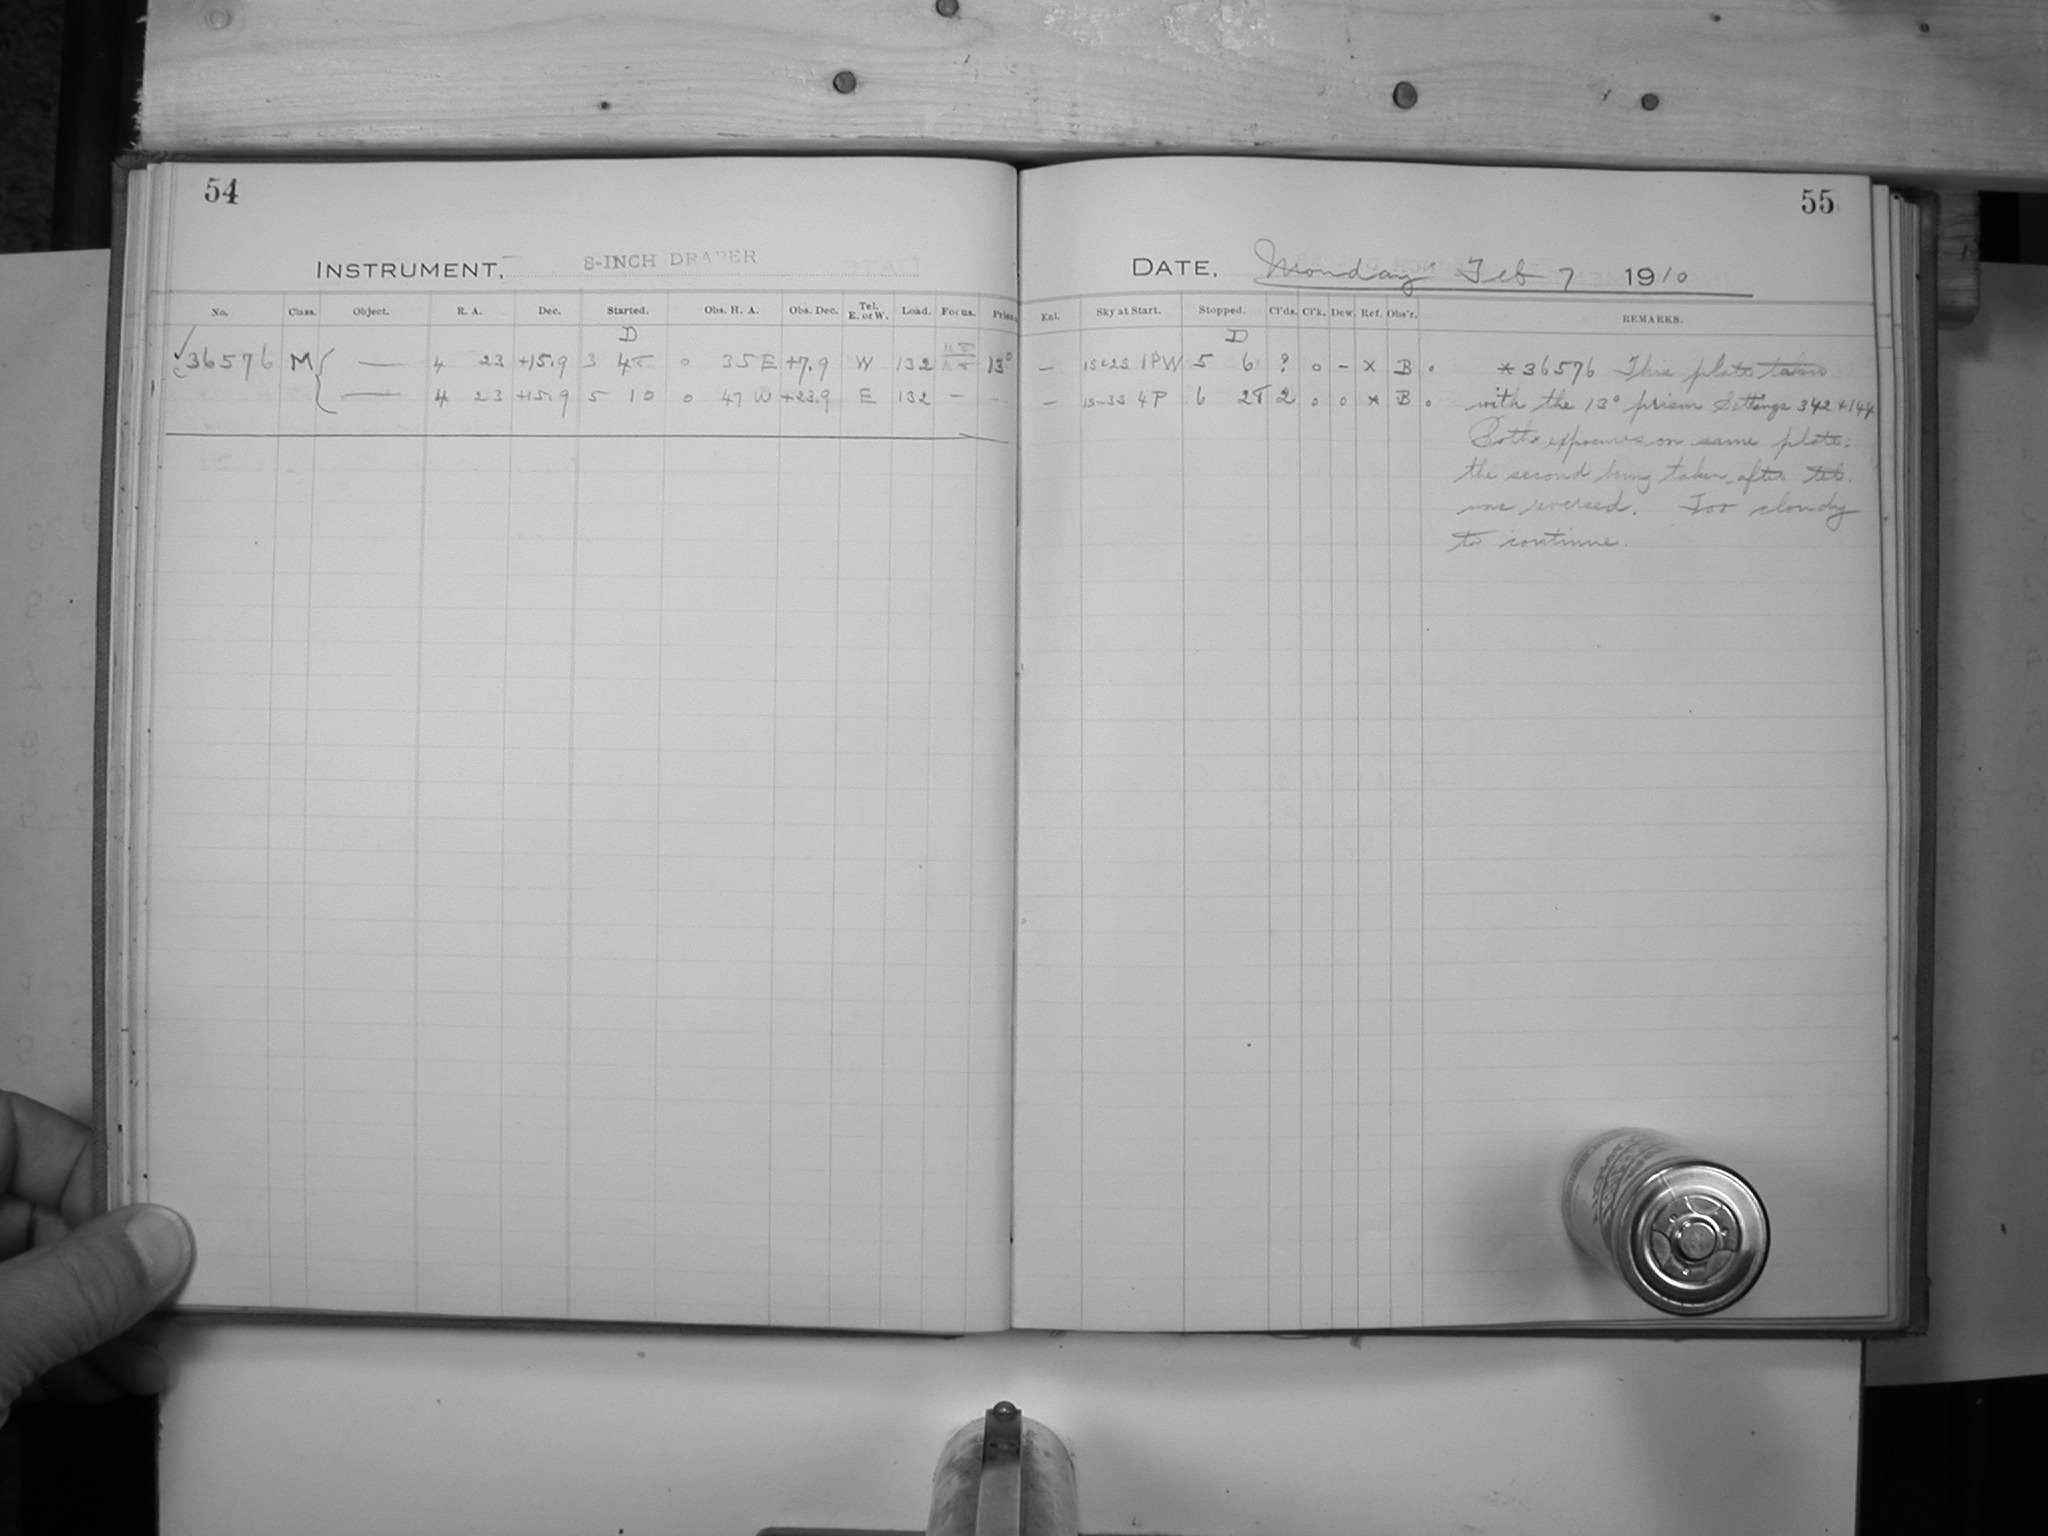 54
55
INSTRUMENT, 8-INCH DRAPER
DATE, Monday Feb 7 1910
No. Class. Object. R. A. Dec. Started. Obs. H. A. Obs. Dec. Tel. E. or W. Load. Focus. Prism
Enl. Sky at Start. Stopped. Cl'ds. Cl'k. Dew. Ref. Obs'r. REMARKS.
D
D
✓36576 M { — 4 23 +15.9 3 45 0 35 E +7.9 W 132 13°
— 1S-2S 1PW 5 6 ? 0 – X B
— 4 23 +15.9 5 10 0 47 W +23.9 E 132 – –
— 1S-3S 4P 6 28 2 0 0 * B
* 36576 This plate taken
with the 13° prism Settings 342 + 144
Both exposures on same plate;
the second being taken after tel.
was reversed. Too cloudy
to continue.